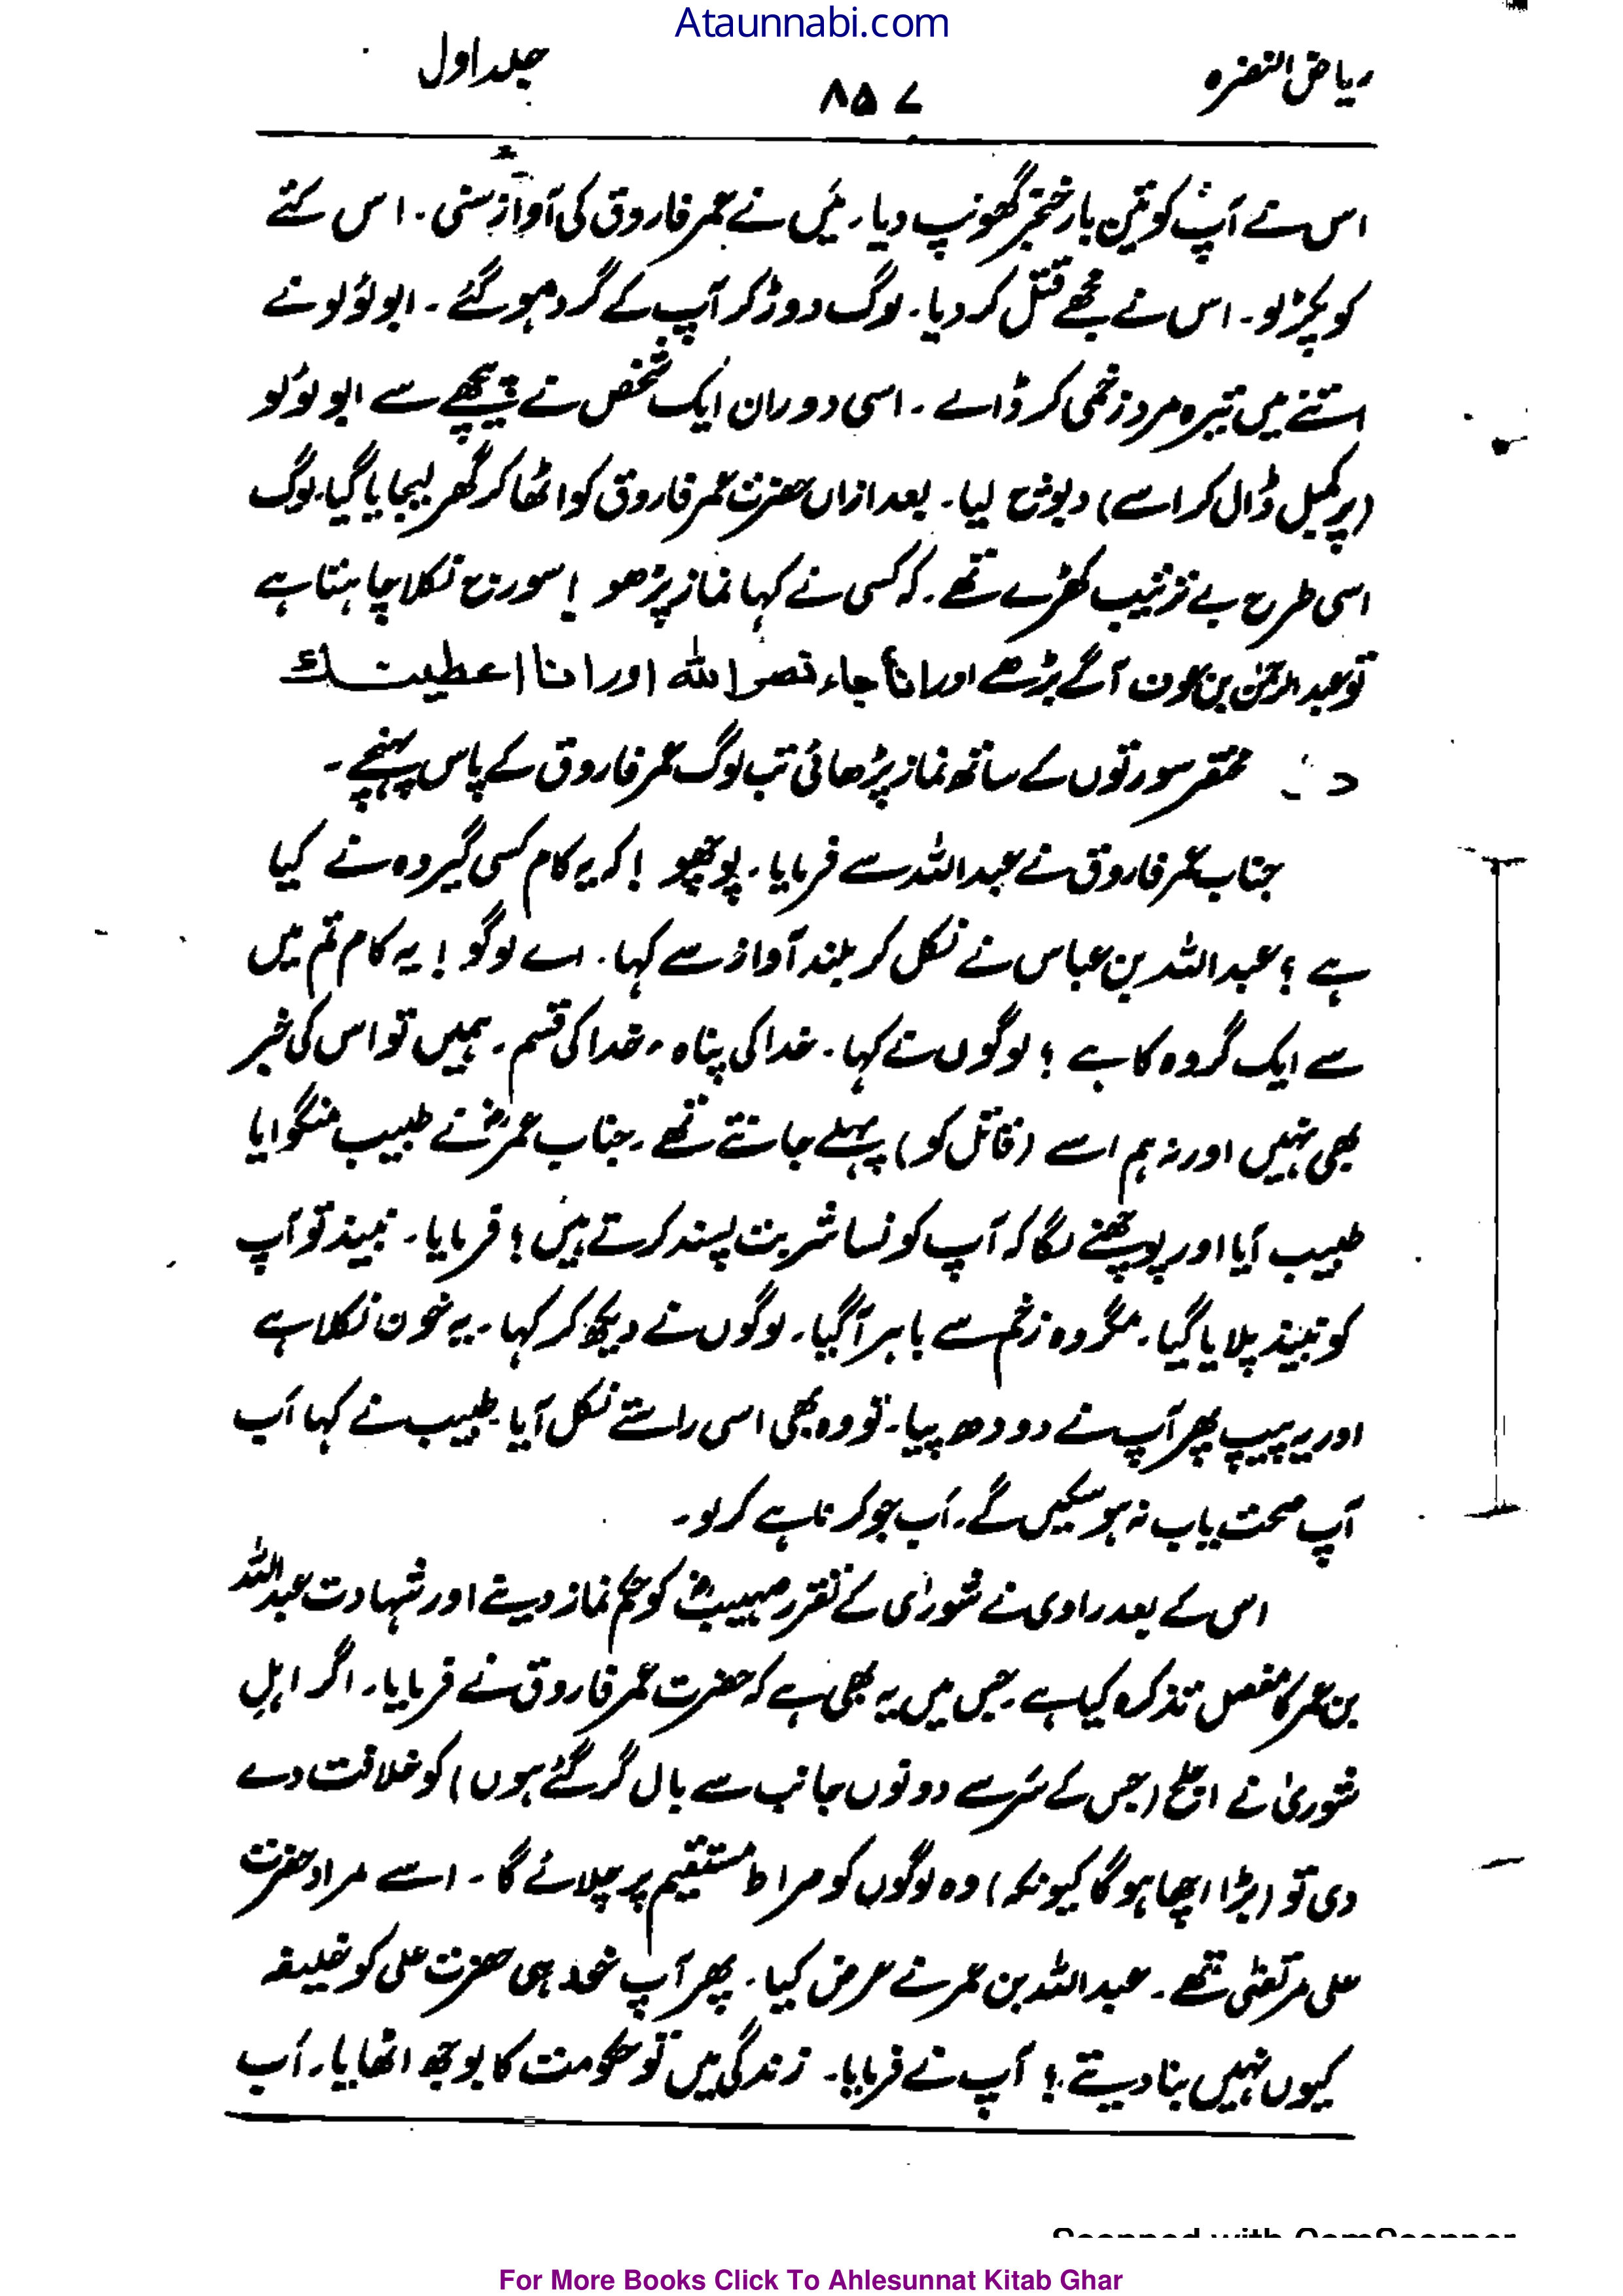 Ataunnabi.com
ریاض النضرہ
۸۵۷
جلد اول
اس نے آپؓ کو تین بار خنجر گھونپ دیا۔ میں نے عمر فاروق کی آواز سنی۔ اس کتے
کو پکڑ لو۔ اس نے مجھے قتل کر دیا۔ لوگ دوڑ کر آپ کے گرد ہو گئے۔ ابو لؤلو نے
اتنے میں تیرہ مرد زخمی کر ڈالے۔ اسی دوران ایک شخص نے پیچھے سے ابو لؤلو
(پر کمبل ڈال کر اسے) دبوچ لیا۔ بعد ازاں حضرت عمر فاروق کو اٹھا کر گھر لیجایا گیا۔ لوگ
اسی طرح بے ترتیب کھڑے تھے۔ کہ کسی نے کہا نماز پڑھو! سورج نکلا چاہتا ہے
تو عبد الرحمٰن بن عوف آگے بڑھے اور اذا جاء نصر اللہ اور انا اعطینٰك
مختصر سورتوں کے ساتھ نماز پڑھائی تب لوگ عمر فاروق کے پاس پہنچے۔
جناب عمر فاروق نے عبد اللہ سے فرمایا۔ پوچھو! کہ یہ کام کسی گیروہ نے کیا
ہے؟ عبد اللہ بن عباس نے نکل کر بلند آواز سے کہا۔ اے لوگو! یہ کام تم میں
سے ایک گروہ کا ہے؟ لوگوں نے کہا۔ خدا کی پناہ، خدا کی قسم۔ ہمیں تو اس کی خبر
بھی نہیں اور نہ ہم اسے (قاتل کو) پہلے جانتے تھے۔ جناب عمرؓ نے طبیب منگوایا
طبیب آیا اور پوچھنے لگا کہ آپ کونسا شربت پسند کرتے ہیں؟ فرمایا۔ نبیذ تو آپ
کو نبیذ پلایا گیا۔ مگر وہ زخم سے باہر آگیا۔ لوگوں نے دیکھ کر کہا۔ یہ خون نکلا ہے
اور یہ پیپ پھر آپ نے دودھ پیا۔ تو وہ بھی اسی راستے نکل آیا۔ طبیب نے کہا اَب
آپ صحت یاب نہ ہو سکیں گے۔ اَب جو کرنا ہے کر لو۔
اس کے بعد راوی نے شورٰی کے تقرر صہیبؓ کو حکم نماز دینے اور شہادت عبد اللہ
بن عمر کا مفصل تذکرہ کیا ہے۔ جس میں یہ بھی ہے کہ حضرت عمر فاروق نے فرمایا۔ اگر اہلِ
شورٰی نے اجلح (جس کے سَر سے دونوں جانب سے بال گر گئے ہوں) کو خلافت دے
دی تو (بڑا اچھا ہوگا کیونکہ) وہ لوگوں کو صراط مستقیم پر چلائے گا۔ اسے مراد حضرت
علی مرتضٰی تھے۔ عبد اللہ بن عمر نے عرض کیا۔ پھر آپ خود ہی حضرت علی کو خلیفہ
کیوں نہیں بنا دیتے؟ آپ نے فرمایا۔ زندگی میں تو حکومت کا بوجھ اٹھایا۔ اَب
Scanned with CamScanner
For More Books Click To Ahlesunnat Kitab Ghar